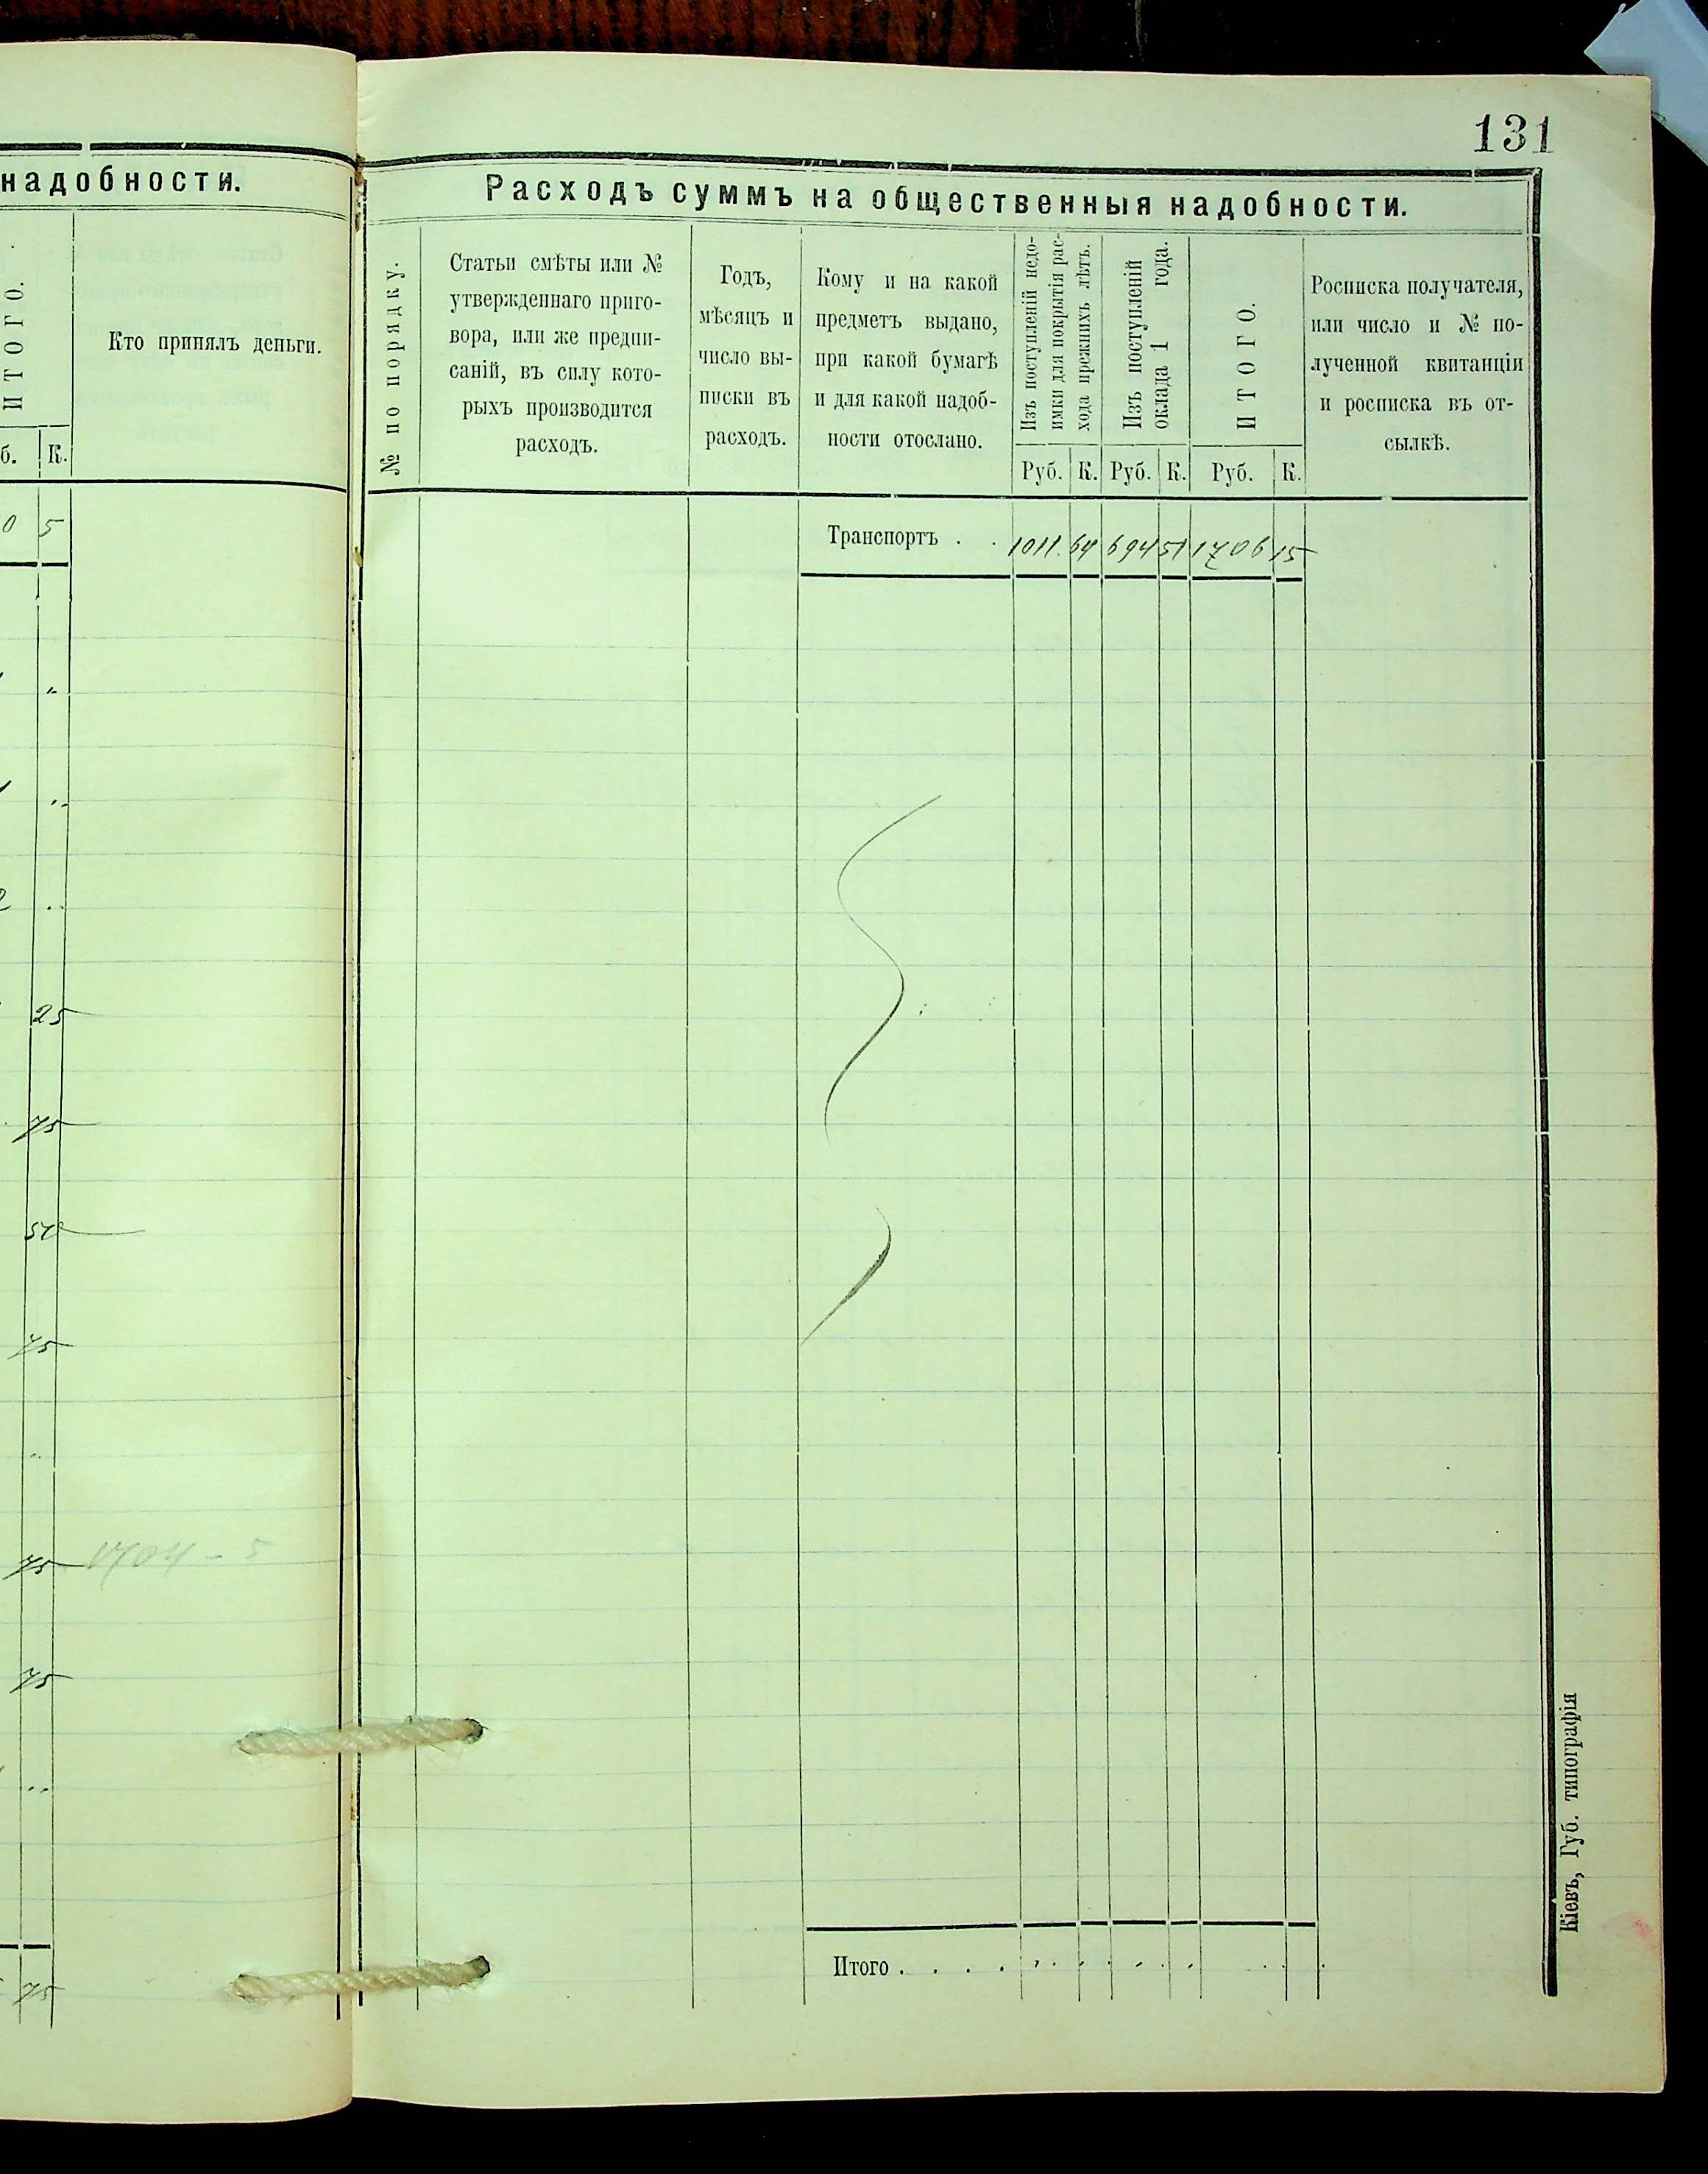 131
надобности.
ИТОГО.
Кто принялъ деньги.
б. К.
0 5
25
75
50
75
75 1704 - 5
75
75
Расходъ суммъ на общественныя надобности.
№ по порядку.
Статьи смѣты или №
утвержденнаго приго-
вора, или же предпи-
саній, въ силу кото-
рыхъ производится
расходъ.
Годъ,
мѣсяцъ и
число вы-
писки въ
расходъ.
Кому и на какой
предметъ выдано,
при какой бумагѣ
и для какой надоб-
ности отослано.
Изъ поступленій недо-
имки для покрытія рас-
хода прежнихъ лѣтъ.
Изъ поступленій
оклада 1 года.
ИТОГО.
Росписка получателя,
или число и № по-
лученной квитанціи
и росписка въ от-
сылкѣ.
Руб. К. Руб. К. Руб. К.
Транспортъ . . 1011. 64 694 51 1706 15
Итого . . . .
Кіевъ, Губ. типографія